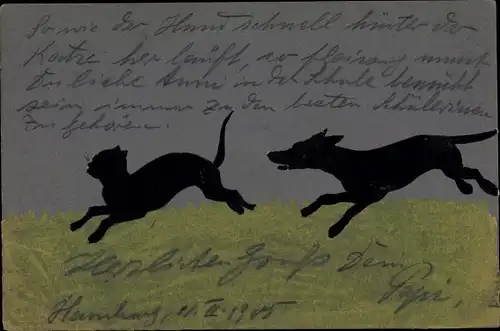 So wie der Hund schnell hinter der
Katze her läuft, so fleissig musst
Du liebe Anni in der Schule bemüht
sein immer zu den besten Schülerinnen
zu gehören.
Herzlichen Gruß Dein
Papi,
Hamburg, 11. II. 1905